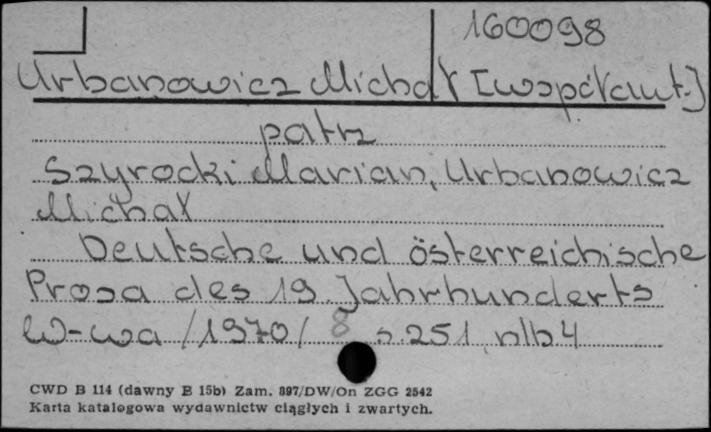 160098
Urbanowicz Michał [współaut.]
patrz
Szyrocki Marian, Urbanowicz
Michał
Deutsche und österreichische
Prosa des 19. Jahrhunderts
W-wa /1970/ 8 s. 251 nlb 4
CWD B 114 (dawny B 15b) Zam. 897/DW/On ZGG 2542
Karta katalogowa wydawnictw ciągłych i zwartych.